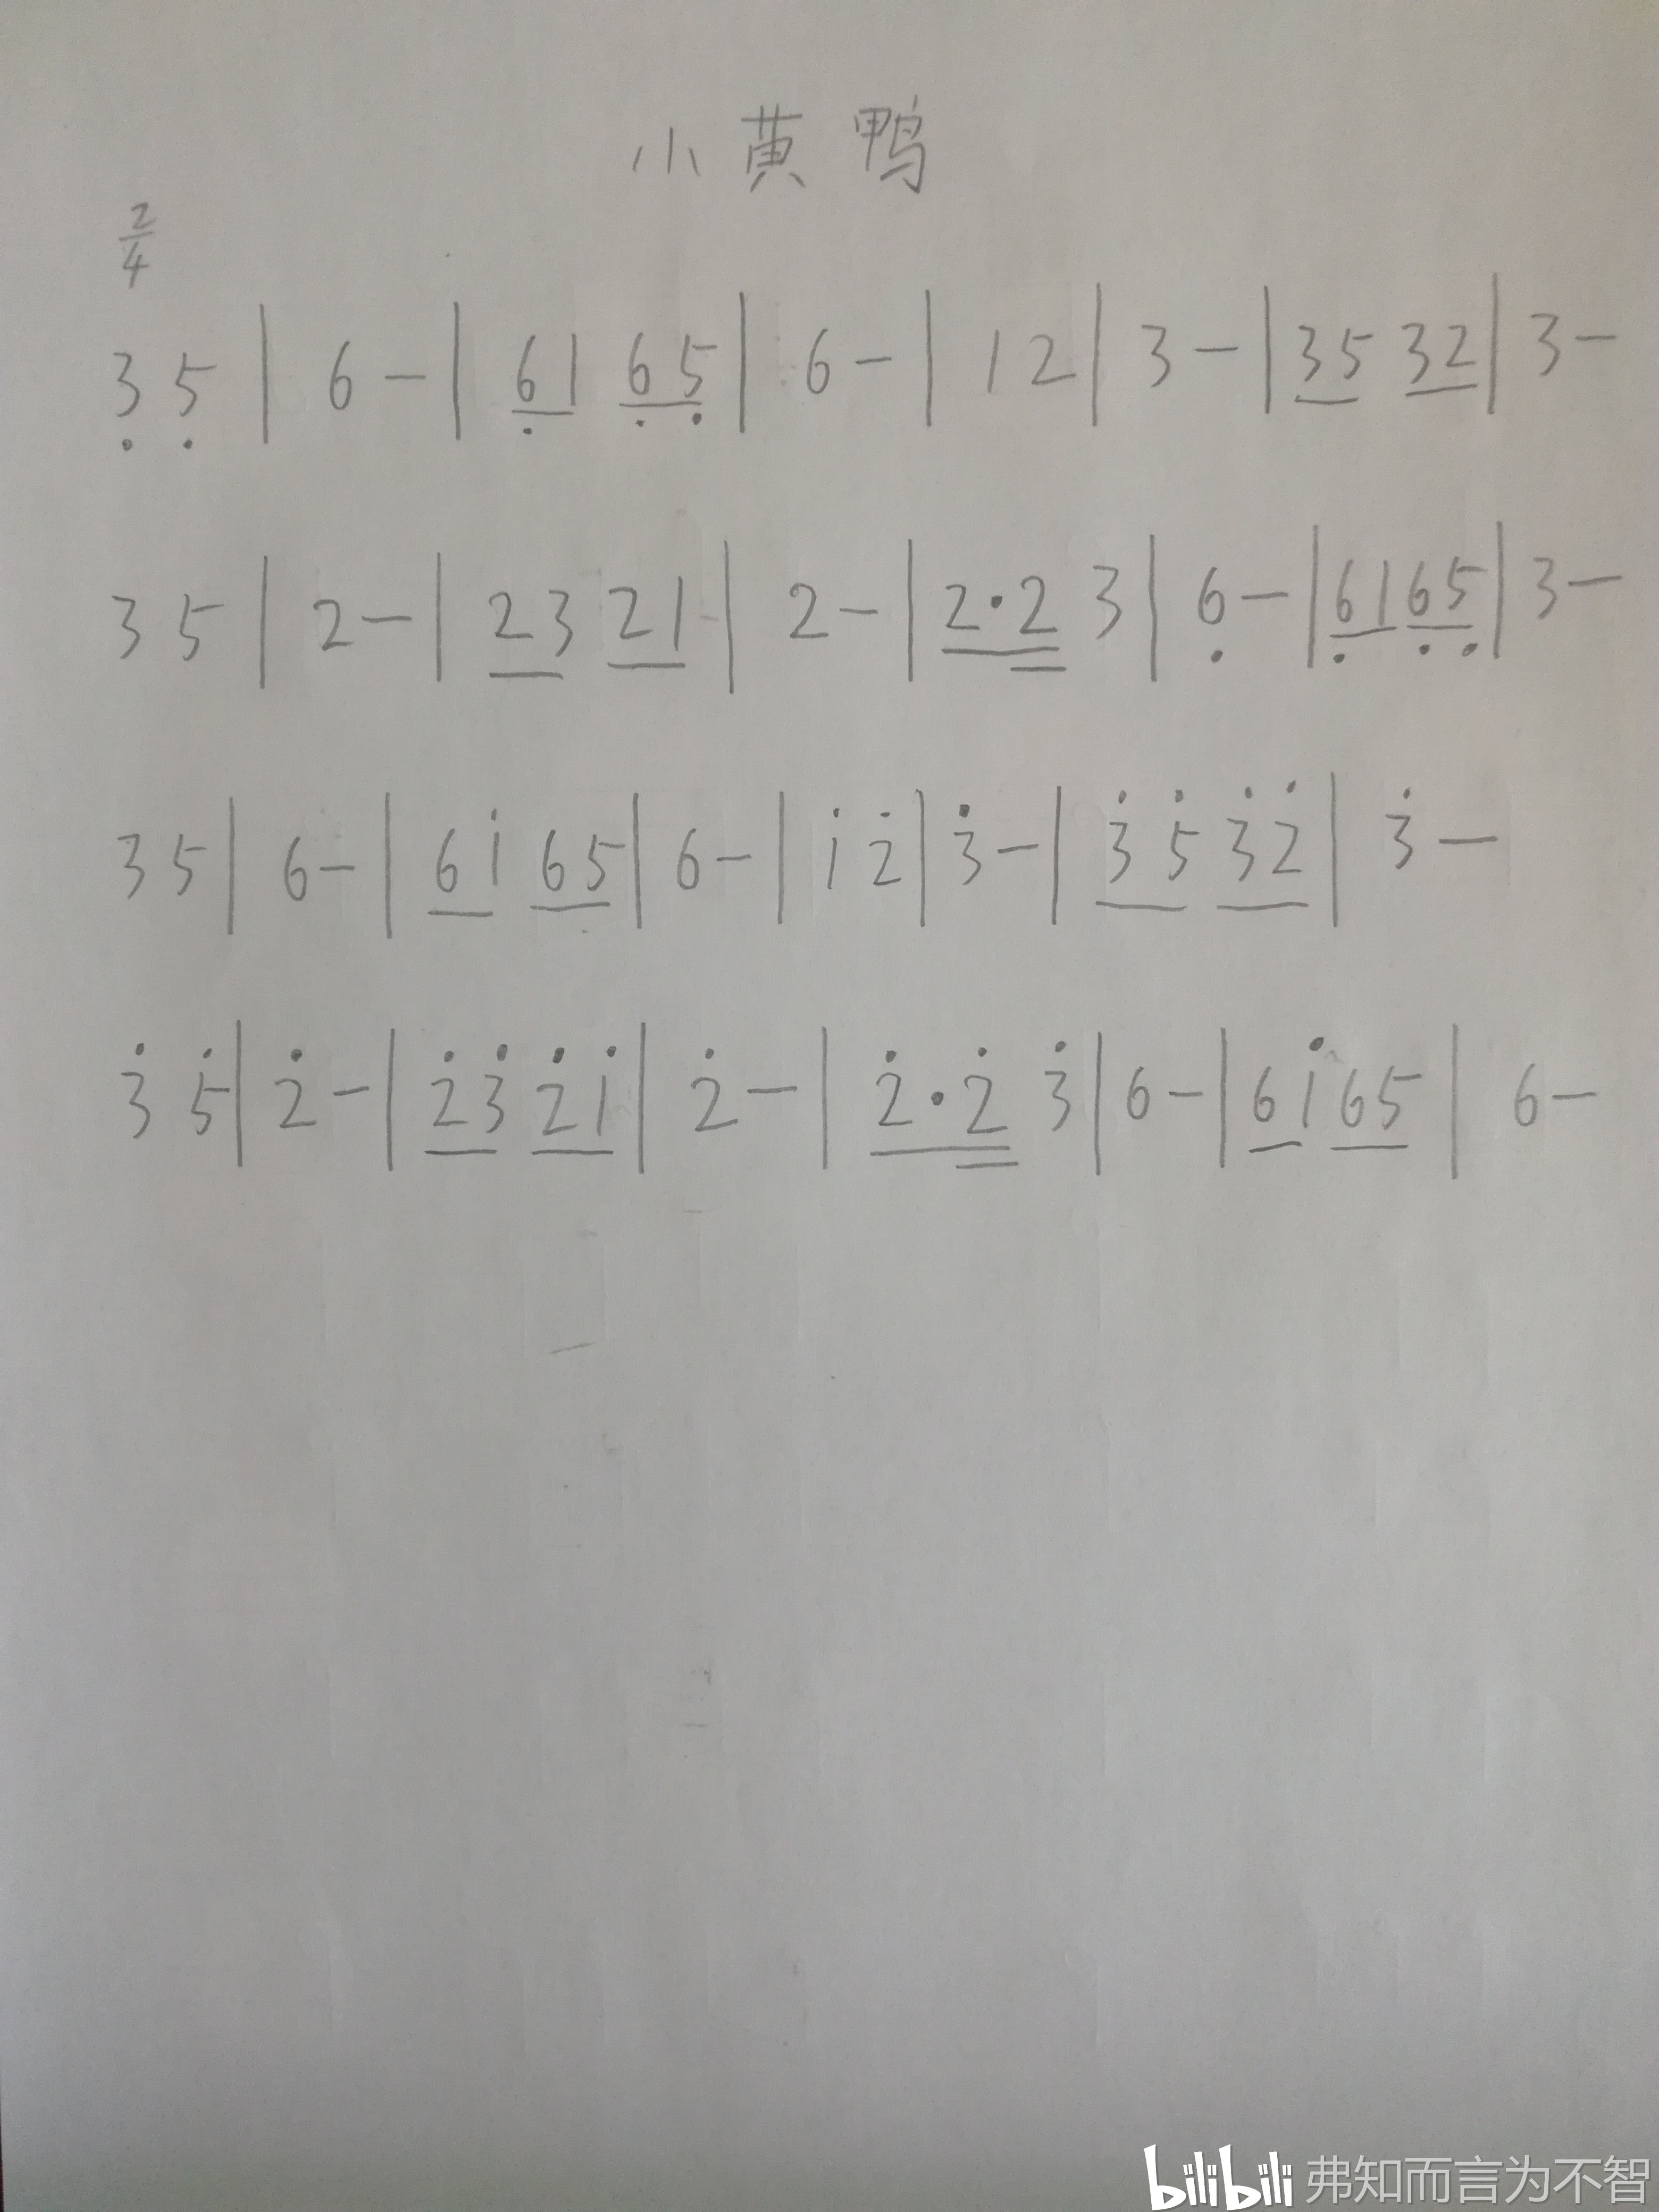 小黄鸭
2/4
3̣ 5̣ | 6 - | 6̣1 6̣5̣ | 6 - | 1 2 | 3 - | 35 32 | 3 -
3 5 | 2 - | 23 21 | 2 - | 2·2 3 | 6̣ - | 6̣1 6̣5̣ | 3 -
3 5 | 6 - | 61̇ 65 | 6 - | 1̇ 2̇ | 3̇ - | 3̇5̇ 3̇2̇ | 3̇ -
3̇ 5̇ | 2̇ - | 2̇3̇ 2̇1̇ | 2̇ - | 2̇·2̇ 3̇ | 6 - | 61̇ 65 | 6 -
bilibili 弗知而言为不智